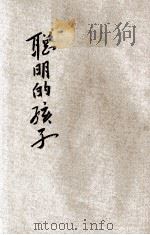 聪明的孩子
www.mtoou.info